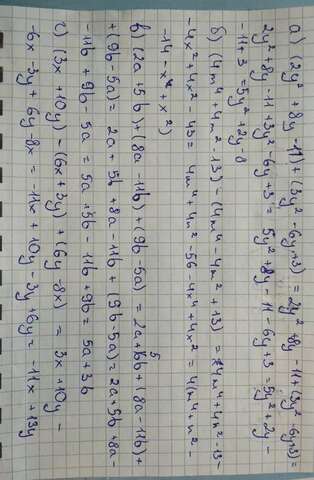 а) (2y² + 8y - 11) + (3y² - 6y + 3) = 2y² + 8y - 11 + (3y² - 6y + 3) =
2y² + 8y - 11 + 3y² - 6y + 3 = 5y² + 8y - 11 - 6y + 3 = 5y² + 2y -
- 11 + 3 = 5y² + 2y - 8
б) (4m⁴ + 4m² - 13) - (4m⁴ - 4m² + 13) = 4m⁴ + 4m² - 13 -
- 4x² + 4x² - 43 = 4m⁴ + 4m² - 56 - 4x⁴ + 4x² = 4(m⁴ + m² -
- 14 - x⁴ + x²)
в) (2a + 5b) + (8a - 11b) + (9b - 5a) = 2a + 5b + (8a - 11b) +
+ (9b - 5a) = 2a + 5b + 8a - 11b + (9b - 5a) = 2a + 5b + 8a -
- 11b + 9b - 5a = 5a + 5b - 11b + 9b = 5a + 3b
г) (3x + 10y) - (6x + 3y) + (6y - 8x) = 3x + 10y -
- 6x - 3y + 6y - 8x = - 11x + 10y - 3y + 6y = - 11x + 13y